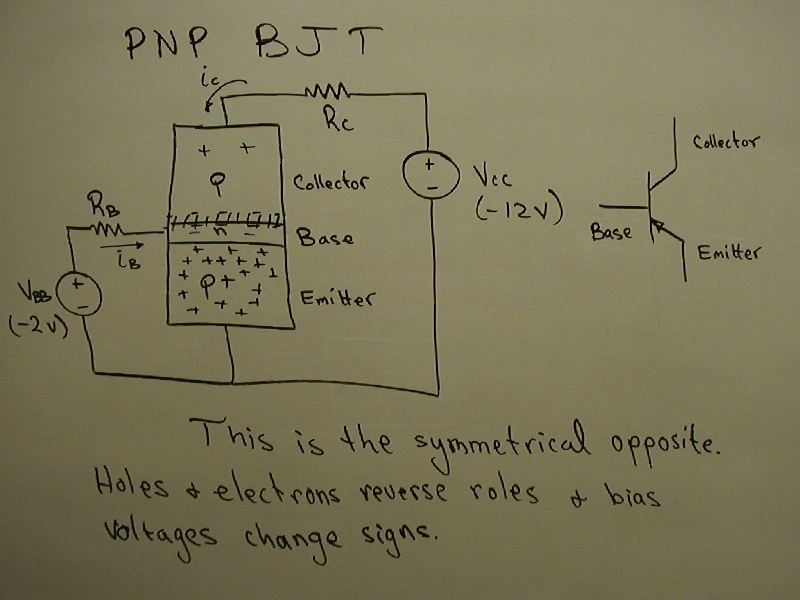 PNP BJT
ic
Rc
+ +
P
Collector
+
-
Vcc
(-12V)
RB
iB
n
Base
VBB
+
-
(-2V)
P
Emitter
Collector
Base
Emitter
This is the symmetrical opposite.
Holes & electrons reverse roles & bias
voltages change signs.